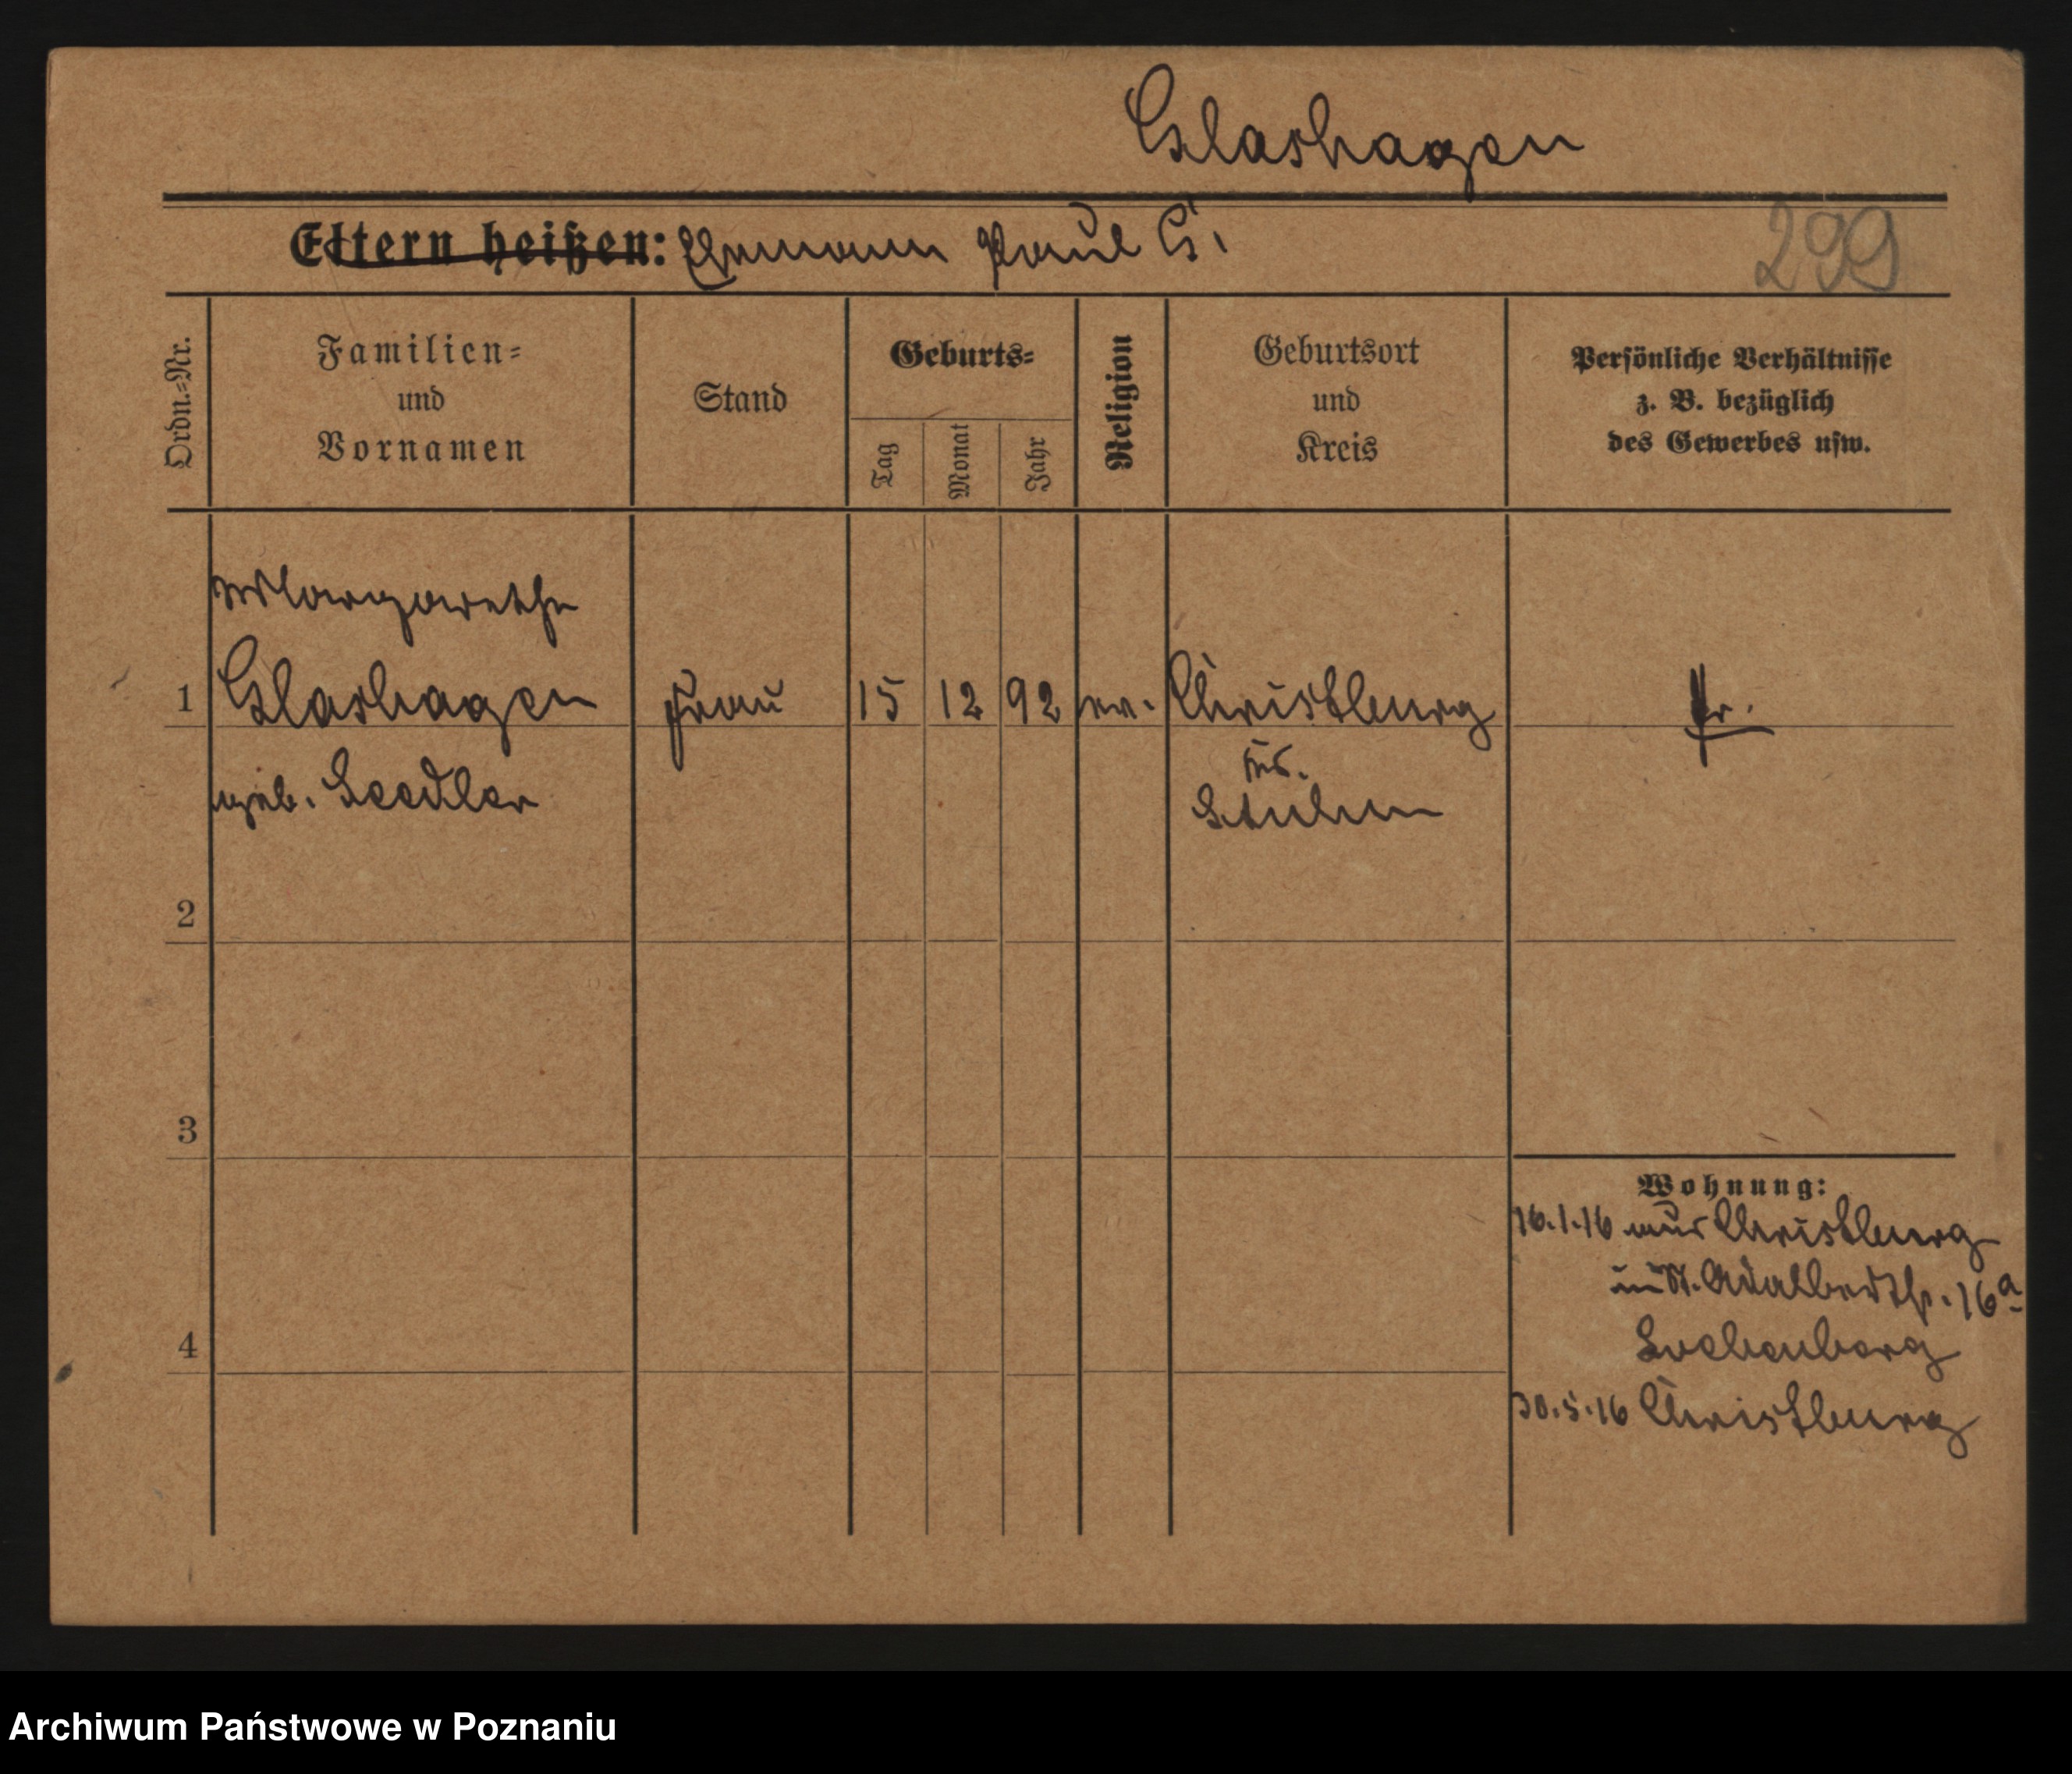 Glashagen
Eltern heißen: Ehemann Paul G.
299
Ordn.-Nr.
Familien-
und
Vornamen
Stand
Geburts-
Tag
Monat
Jahr
Religion
Geburtsort
und
Kreis
Persönliche Verhältnisse
z. B. bezüglich
des Gewerbes usw.
Margarethe
1 Glashagen Frau 15 12 92 ev. Christburg Pr.
geb. Seedler
Krs.
Stuhm
2
3
4
Wohnung:
16.1.16 aus Christburg
in St. Adalbertstr. 16a
30.5.16 Christburg
Archiwum Państwowe w Poznaniu